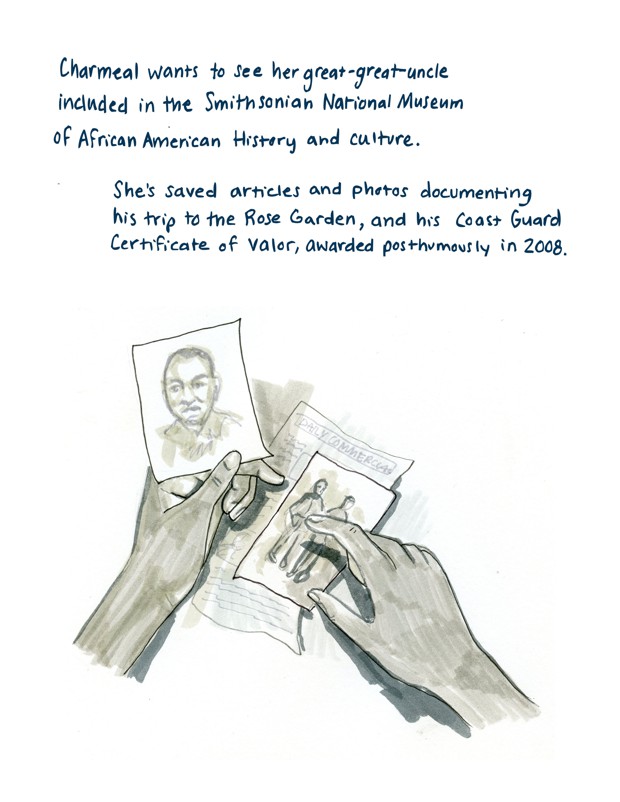 Charmeal wants to see her great-great-uncle
included in the Smithsonian National Museum
of African American History and culture.
She's saved articles and photos documenting
his trip to the Rose Garden, and his Coast Guard
Certificate of Valor, awarded posthumously in 2008.
DAILY COMMERCIAL